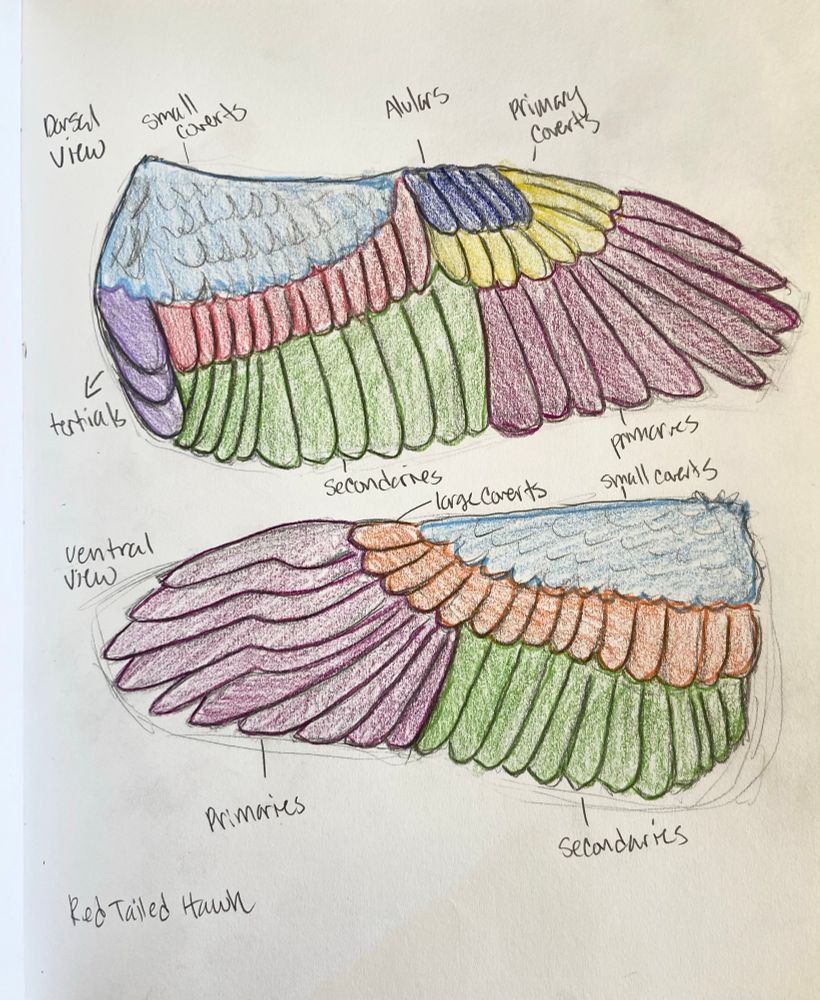 Dorsal
View
small
coverts
Alulars
Primary
coverts
tertials
primaries
secondaries
small coverts
large coverts
ventral
view
Primaries
secondaries
Red Tailed Hawk